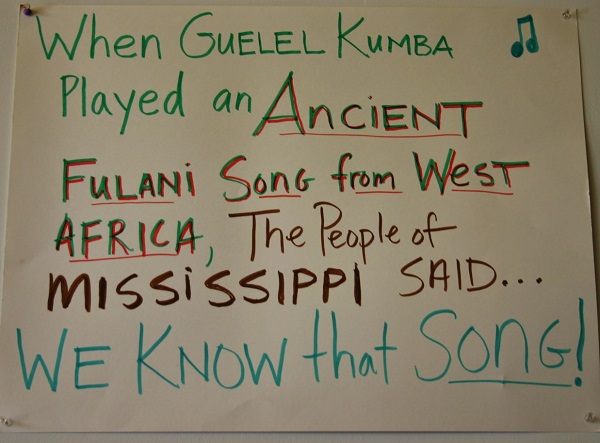 When GUELEL KUMBA
Played an ANCiENT
FULANi Song from West
AFRICA, The People of
MISSiSSIPPI SAID...
WE KNOW that SONG!